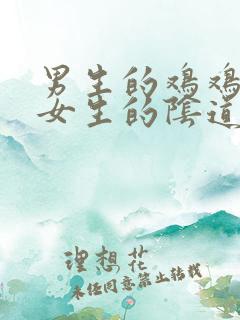 男生的鸡鸡
女生的阴道
理想花
未经同意禁止转载